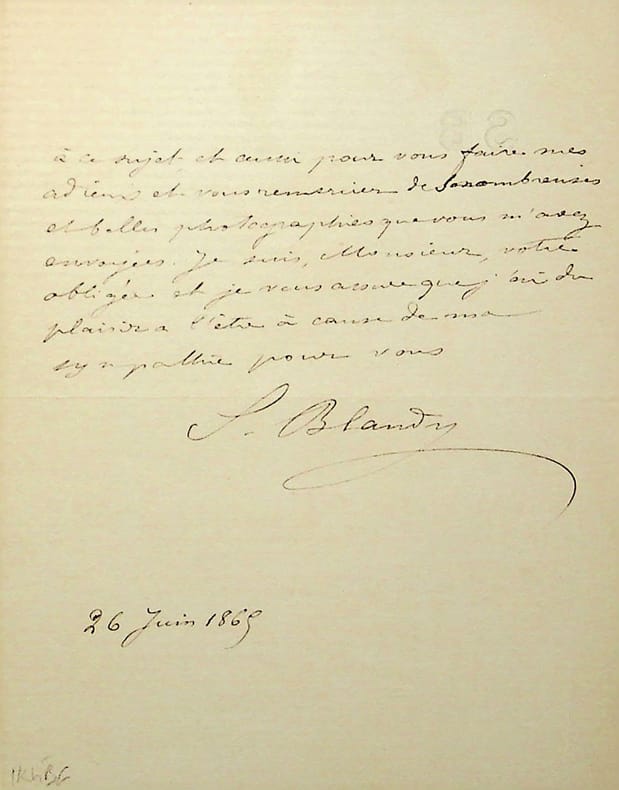 à ce sujet, et aussi pour vous faire mes
adieux et vous remercier de nombreuses
et belles photographies que vous m'avez
envoyées. Je suis, Monsieur, votre
obligée et je vous assure que j'ai du
plaisir a l'être à cause de ma
sympathie pour vous
S. Blandy
26 Juin 1865